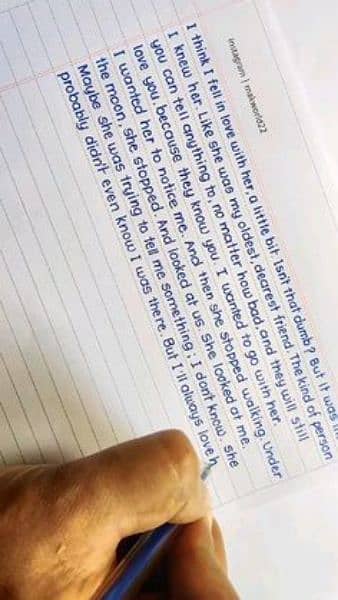 Instagram | makworld22
I think I fell in love with her a little bit. Isn't that dumb? But it was
I knew her. Like she was my oldest, dearest friend. The kind of person
you can tell anything to, no matter how bad, and they will still
love you, because they know you. I wanted to go with her.
I wanted her to notice me. And then she stopped walking. Under
the moon, she stopped. And looked at us. She looked at me.
Maybe she was trying to tell me something; I don't know. she
probably didn't even know I was there. But I'll always love h